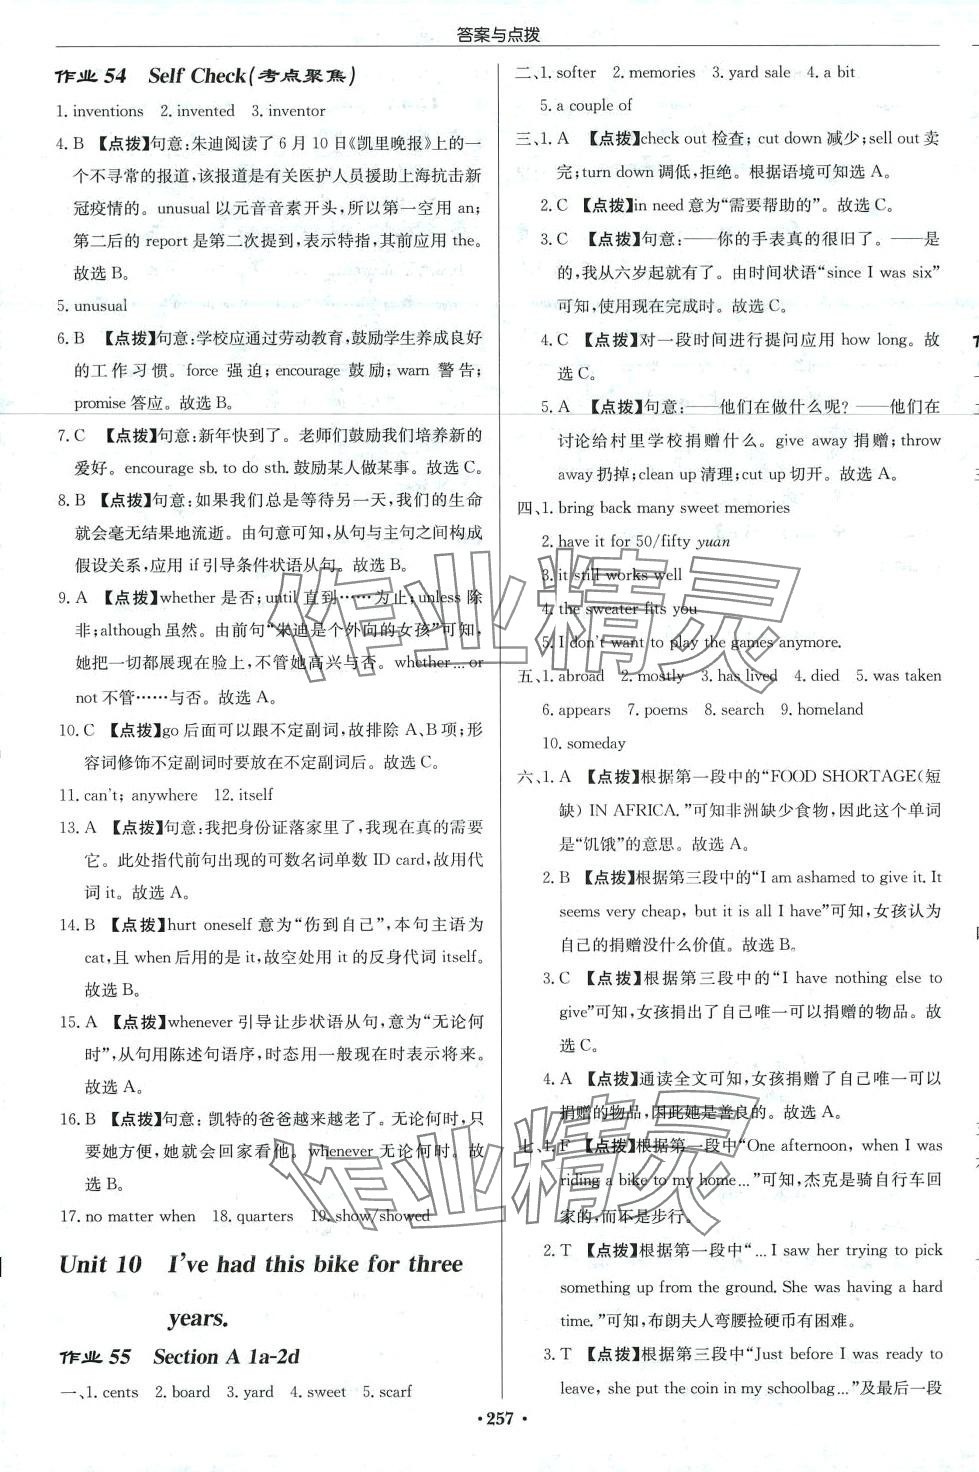 答案与点拨
作业 54 Self Check(考点聚焦)
1. inventions 2. invented 3. inventor
4. B 【点拨】句意:朱迪阅读了 6 月 10 日《凯里晚报》上的一
个不寻常的报道,该报道是有关医护人员援助上海抗击新
冠疫情的。unusual 以元音音素开头,所以第一空用 an;
第二后的 report 是第二次提到,表示特指,其前应用 the。
故选 B。
5. unusual
6. B 【点拨】句意:学校应通过劳动教育,鼓励学生养成良好
的工作习惯。force 强迫; encourage 鼓励; warn 警告;
promise 答应。故选 B。
7. C 【点拨】句意:新年快到了。老师们鼓励我们培养新的
爱好。encourage sb. to do sth. 鼓励某人做某事。故选 C。
8. B 【点拨】句意:如果我们总是等待另一天,我们的生命
就会毫无结果地流逝。由句意可知,从句与主句之间构成
假设关系,应用 if 引导条件状语从句。故选 B。
9. A 【点拨】whether 是否; until 直到……为止; unless 除
非; although 虽然。由前句“朱迪是个外向的女孩”可知,
她把一切都展现在脸上,不管她高兴与否。whether … or
not 不管……与否。故选 A。
10. C 【点拨】go 后面可以跟不定副词,故排除 A、B 项;形
容词修饰不定副词时要放在不定副词后。故选 C。
11. can't; anywhere 12. itself
13. A 【点拨】句意:我把身份证落家里了,我现在真的需要
它。此处指代前句出现的可数名词单数 ID card,故用代
词 it。故选 A。
14. B 【点拨】hurt oneself 意为“伤到自己”,本句主语为
cat,且 when 后用的是 it,故空处用 it 的反身代词 itself。
故选 B。
15. A 【点拨】whenever 引导让步状语从句,意为“无论何
时”,从句用陈述句语序,时态用一般现在时表示将来。
故选 A。
16. B 【点拨】句意:凯特的爸爸越来越老了。无论何时,只
要她方便,她就会回家看他。whenever 无论何时。故
选 B。
17. no matter when 18. quarters 19. show/showed
Unit 10 I've had this bike for three
years.
作业 55 Section A 1a-2d
一、1. cents 2. board 3. yard 4. sweet 5. scarf
二、1. softer 2. memories 3. yard sale 4. a bit
5. a couple of
三、1. A 【点拨】check out 检查; cut down 减少; sell out 卖
完; turn down 调低,拒绝。根据语境可知选 A。
2. C 【点拨】in need 意为“需要帮助的”。故选 C。
3. C 【点拨】句意:——你的手表真的很旧了。——是
的,我从六岁起就有了。由时间状语“since I was six”
可知,使用现在完成时。故选 C。
4. C 【点拨】对一段时间进行提问应用 how long。故
选 C。
5. A 【点拨】句意:——他们在做什么呢? ——他们在
讨论给村里学校捐赠什么。give away 捐赠; throw
away 扔掉; clean up 清理; cut up 切开。故选 A。
四、1. bring back many sweet memories
2. have it for 50/fifty yuan
3. it still works well
4. the sweater fits you
5. I don't want to play the games anymore.
五、1. abroad 2. mostly 3. has lived 4. died 5. was taken
6. appears 7. poems 8. search 9. homeland
10. someday
六、1. A 【点拨】根据第一段中的“FOOD SHORTAGE(短
缺) IN AFRICA.”可知非洲缺少食物,因此这个单词
是“饥饿”的意思。故选 A。
2. B 【点拨】根据第三段中的“I am ashamed to give it. It
seems very cheap, but it is all I have”可知,女孩认为
自己的捐赠没什么价值。故选 B。
3. C 【点拨】根据第三段中的“I have nothing else to
give”可知,女孩捐出了自己唯一可以捐赠的物品。故
选 C。
4. A 【点拨】通读全文可知,女孩捐赠了自己唯一可以
捐赠的物品,因此她是善良的。故选 A。
七、1. F 【点拨】根据第一段中“One afternoon, when I was
riding a bike to my home…”可知,杰克是骑自行车回
家的,而不是步行。
2. T 【点拨】根据第一段中“… I saw her trying to pick
something up from the ground. She was having a hard
time.”可知,布朗夫人弯腰捡硬币有困难。
3. T 【点拨】根据第三段中“Just before I was ready to
leave, she put the coin in my schoolbag …”及最后一段
· 257 ·
作业精灵
作业精灵